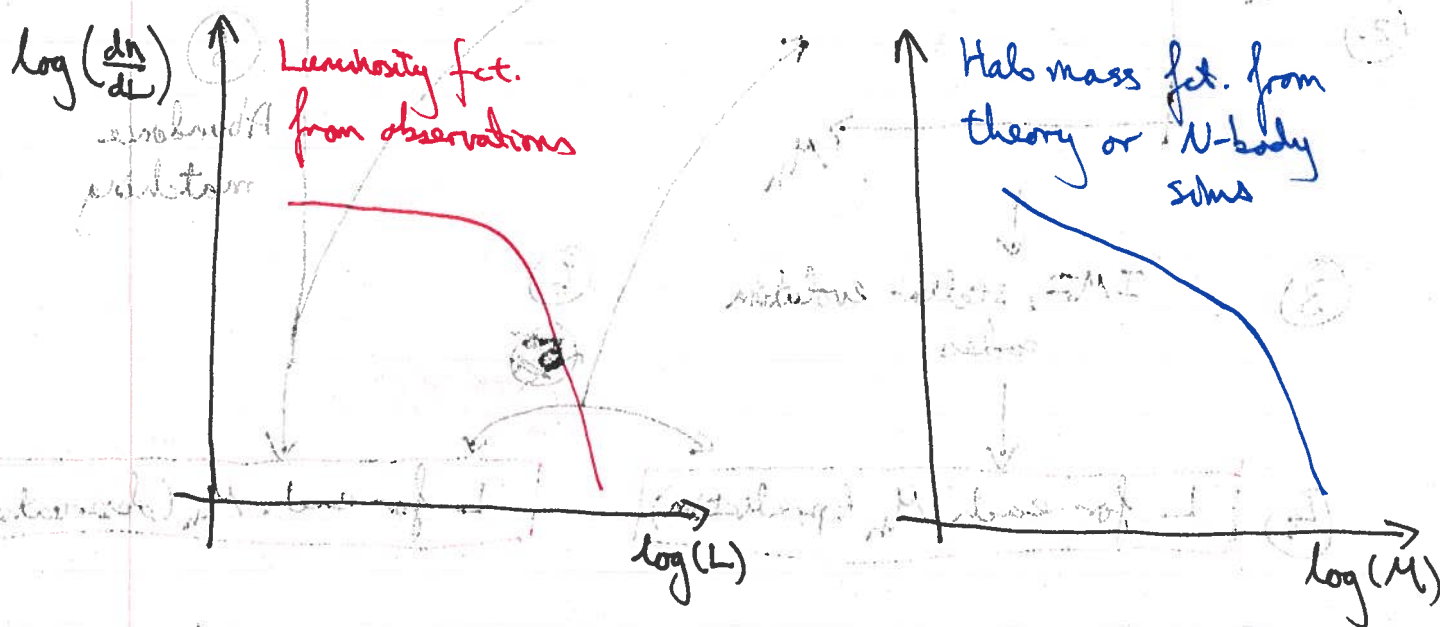 log(dn/dL)
Luminosity fct.
from observations
log(L)
Halo mass fct. from
theory or N-body
sims
log(M)
Abundance
matching